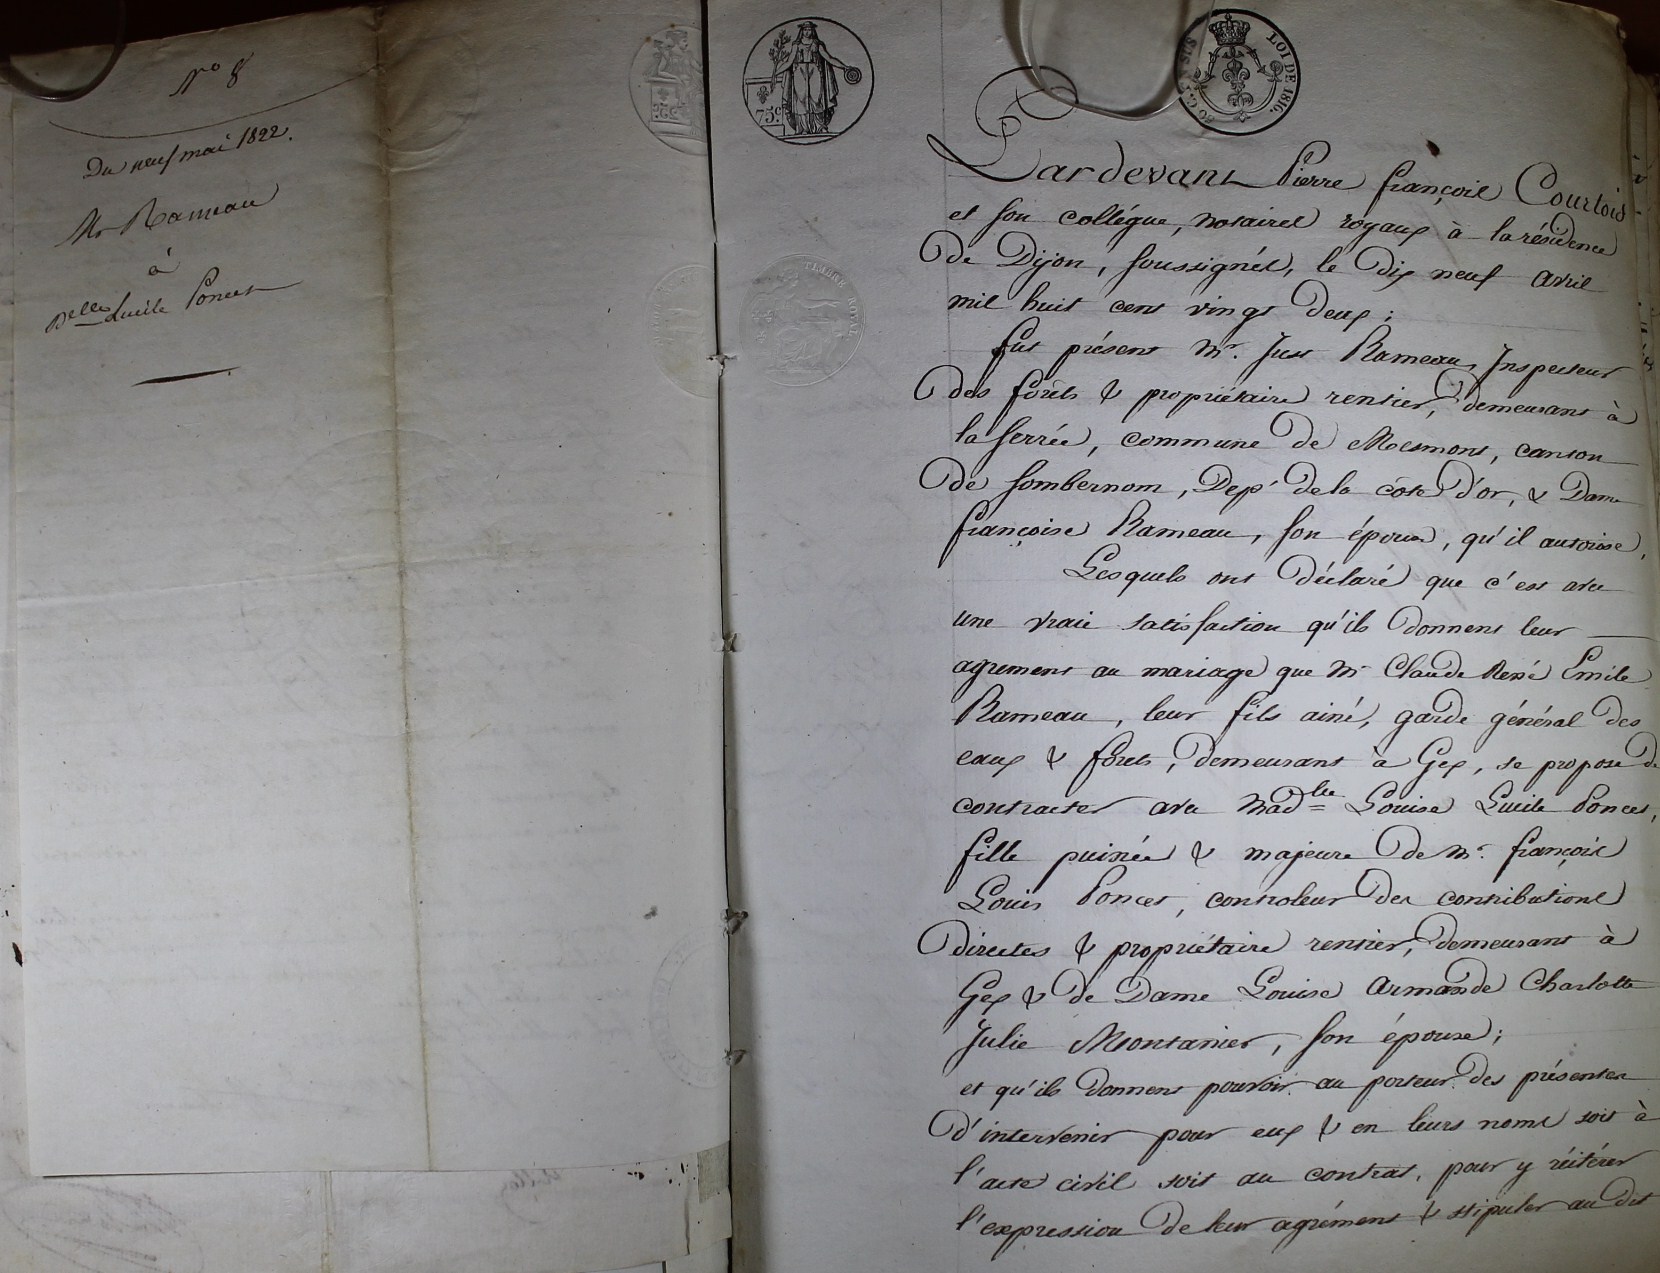 No 8
Du neuf mai 1822.
Mr Rameau
à
Delle Lucile Poncet
75c
LOI DE 1816.
TIMBRE ROYAL
Pardevant Pierre françois Courtois
et son collégue, notaires royaux à la résidence
de Dijon, soussignés, le dix neuf avril
mil huit cent vingt deux;
fut présent Mr. Just Rameau, Inspecteur
des forêts & propriétaire rentier, demeurant à
la serrée, commune de Mesmont, canton
de sombernom, Dept de la côte d'or, & Dame
françoise Rameau, son épouse, qu'il autorise,
Lesquels ont déclaré que c'est avec
une vraie satisfaction qu'ils donnent leur
agrement au mariage que Mr Claude René Emile
Rameau, leur fils ainé, garde général des
eaux & forets, demeurant à Gex, se propose de
contracter avec Madlle Louise Lucile Poncet,
fille puinée & majeure de Mr. françois
Louis Poncet, controleur des contributions
directes & propriétaire rentier, demeurant à
Gex & de Dame Louise Armande Charlotte
Julie Montanier, son épouse;
et qu'ils donnent pouvoir au porteur des présentes
d'intervenir pour eux & en leurs noms soit à
l'acte civil soit au contrat, pour y réitérer
l'expression de leur agrément & stipuler au dit